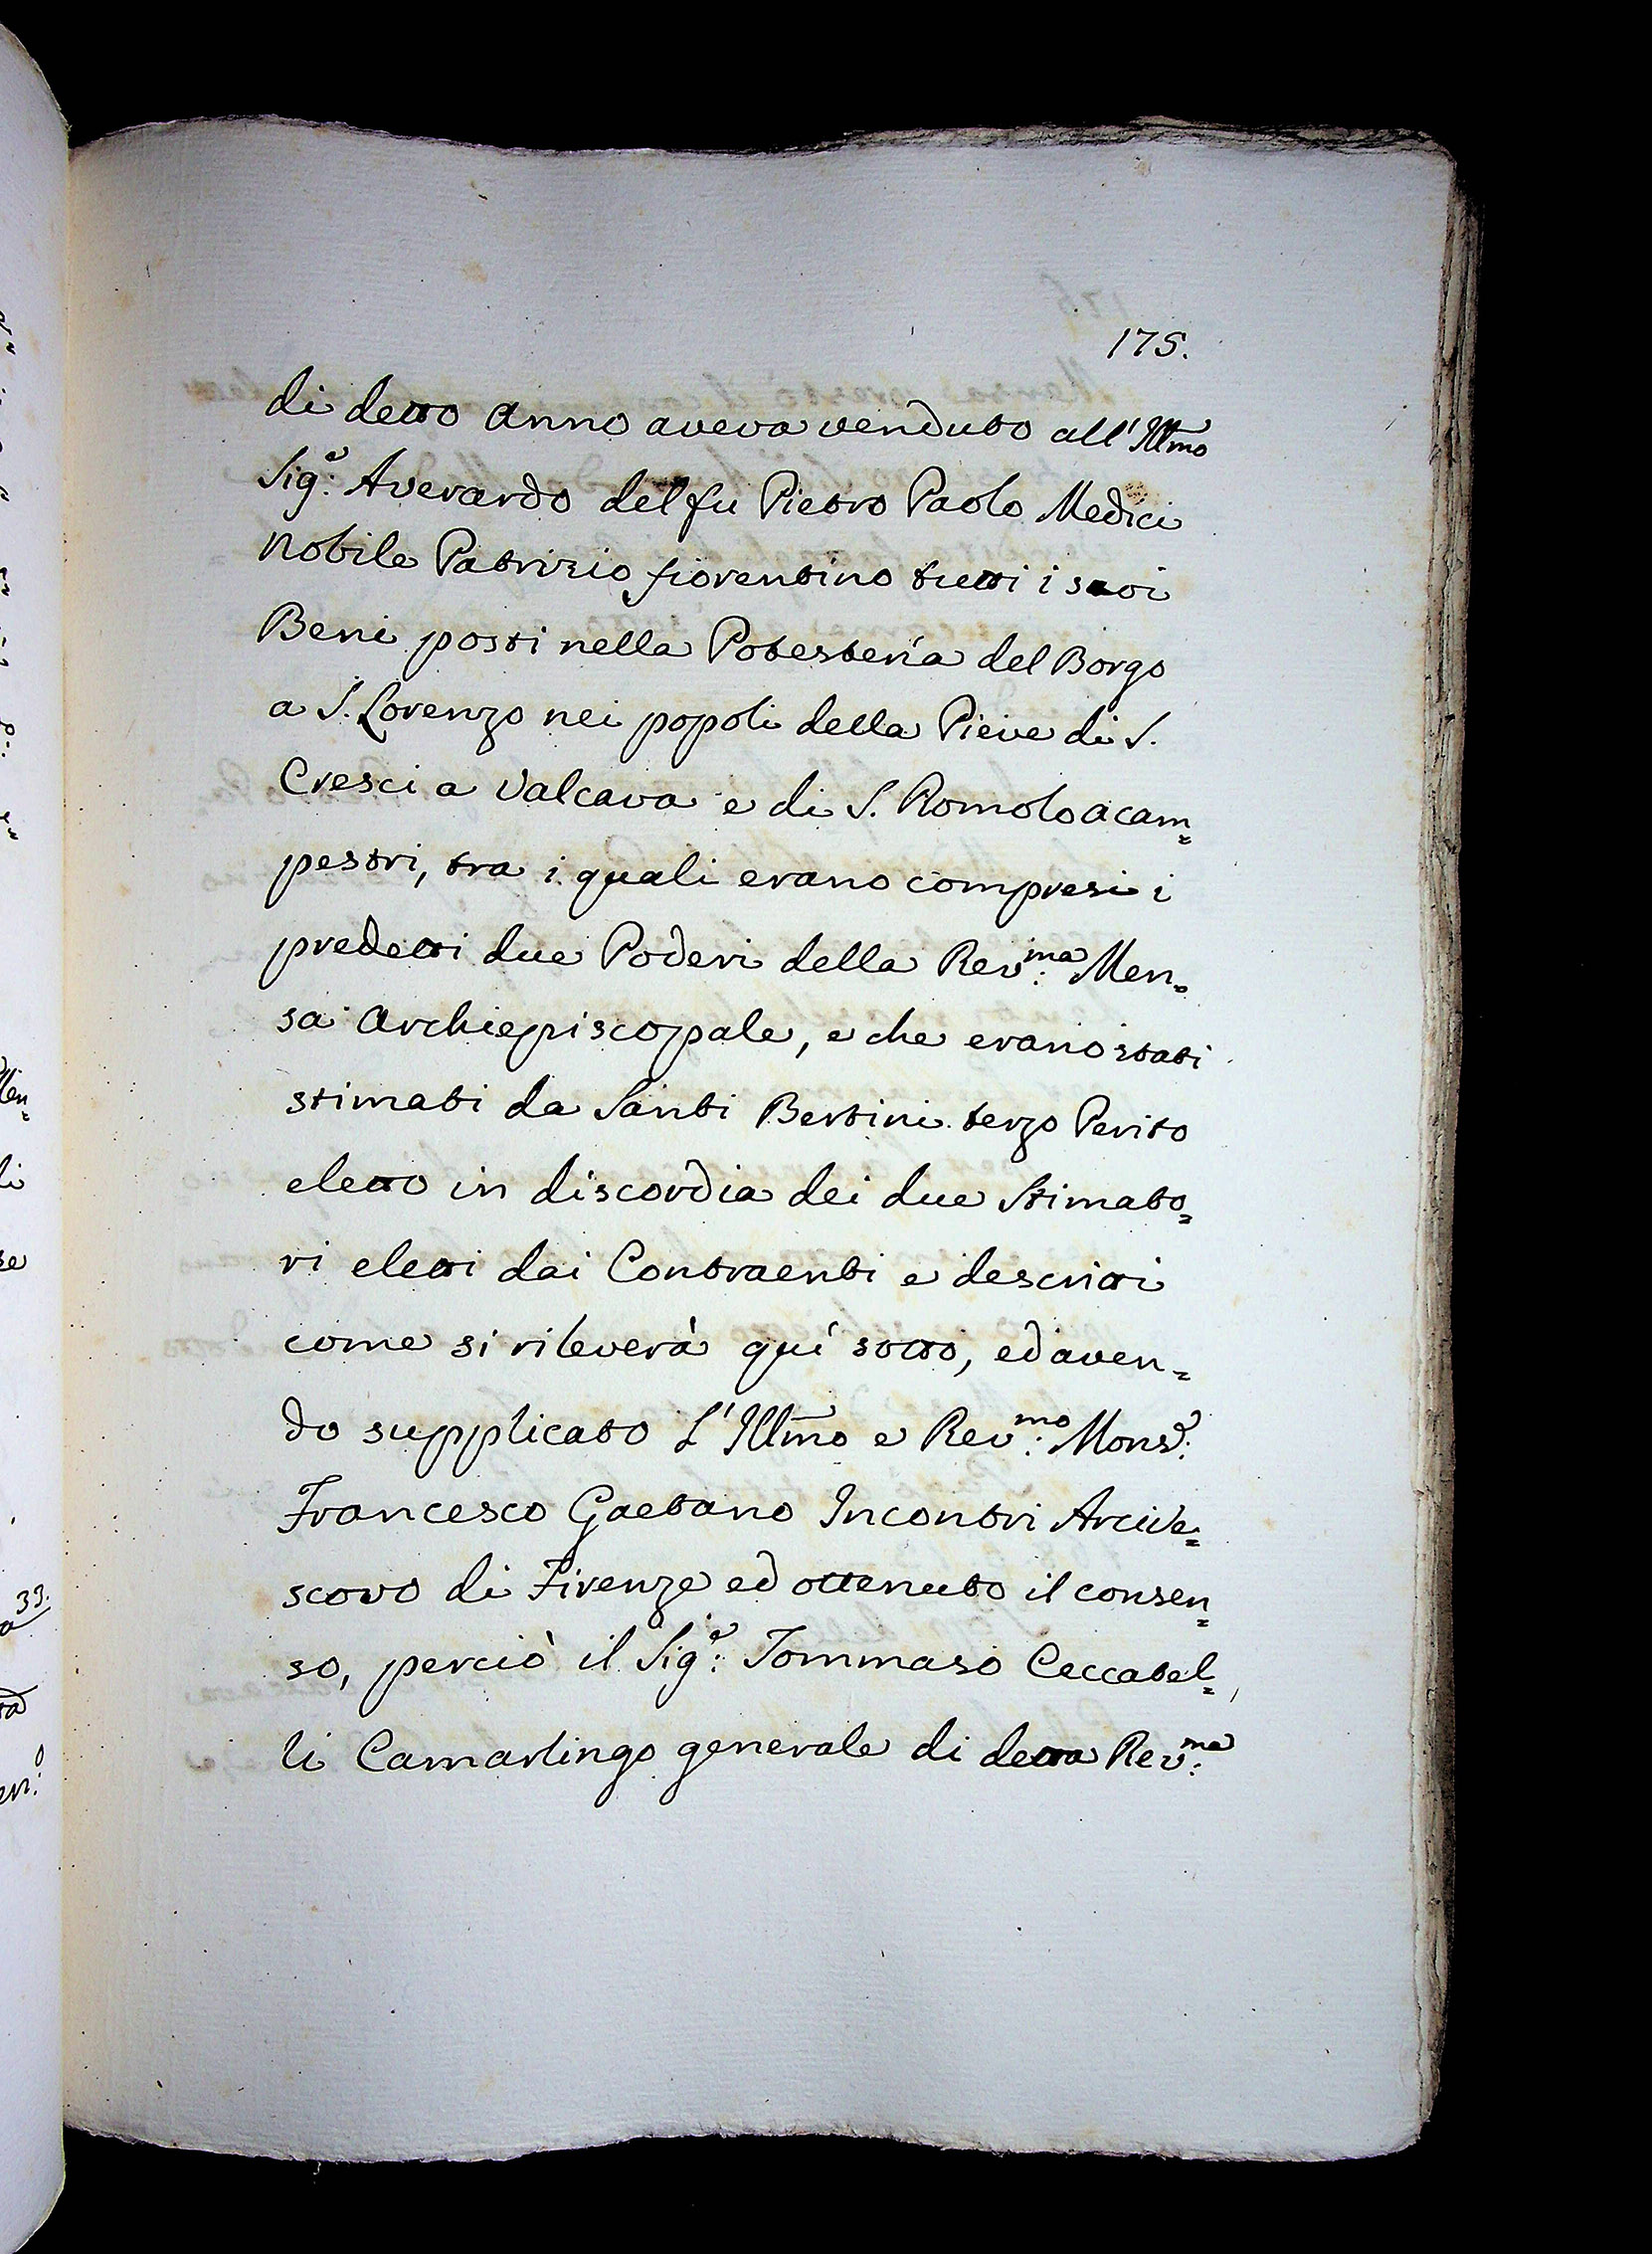 175.
di detto anno aveva venduto all'Illmo
Sig.e Averardo del fu Pietro Paolo Medici
nobile Patrizio fiorentino tutti i suoi
Beni posti nella Potesteria del Borgo
a S. Lorenzo nei popoli della Pieve di S.
Cresci a Valcava e di S. Romolo a cam=
pestri, tra i quali erano compresi i
predetti due Poderi della Rev:ma Men=
sa Archiepiscopale, e che erano stati
stimati da Santi Bertini terzo Perito
eletto in discordia dei due Stimato=
ri eletti dai Contraenti e descritti
come si rileverà quí sotto, ed aven=
do supplicato L'Illmo e Rev:mo Mons.e:
Francesco Gaetano Incontri Arcive=
scovo di Firenze ed ottenuto il consen=
so, perciò il Sig.e: Tommaso Ceccatel=
li Camarlingo generale di detta Rev:ma